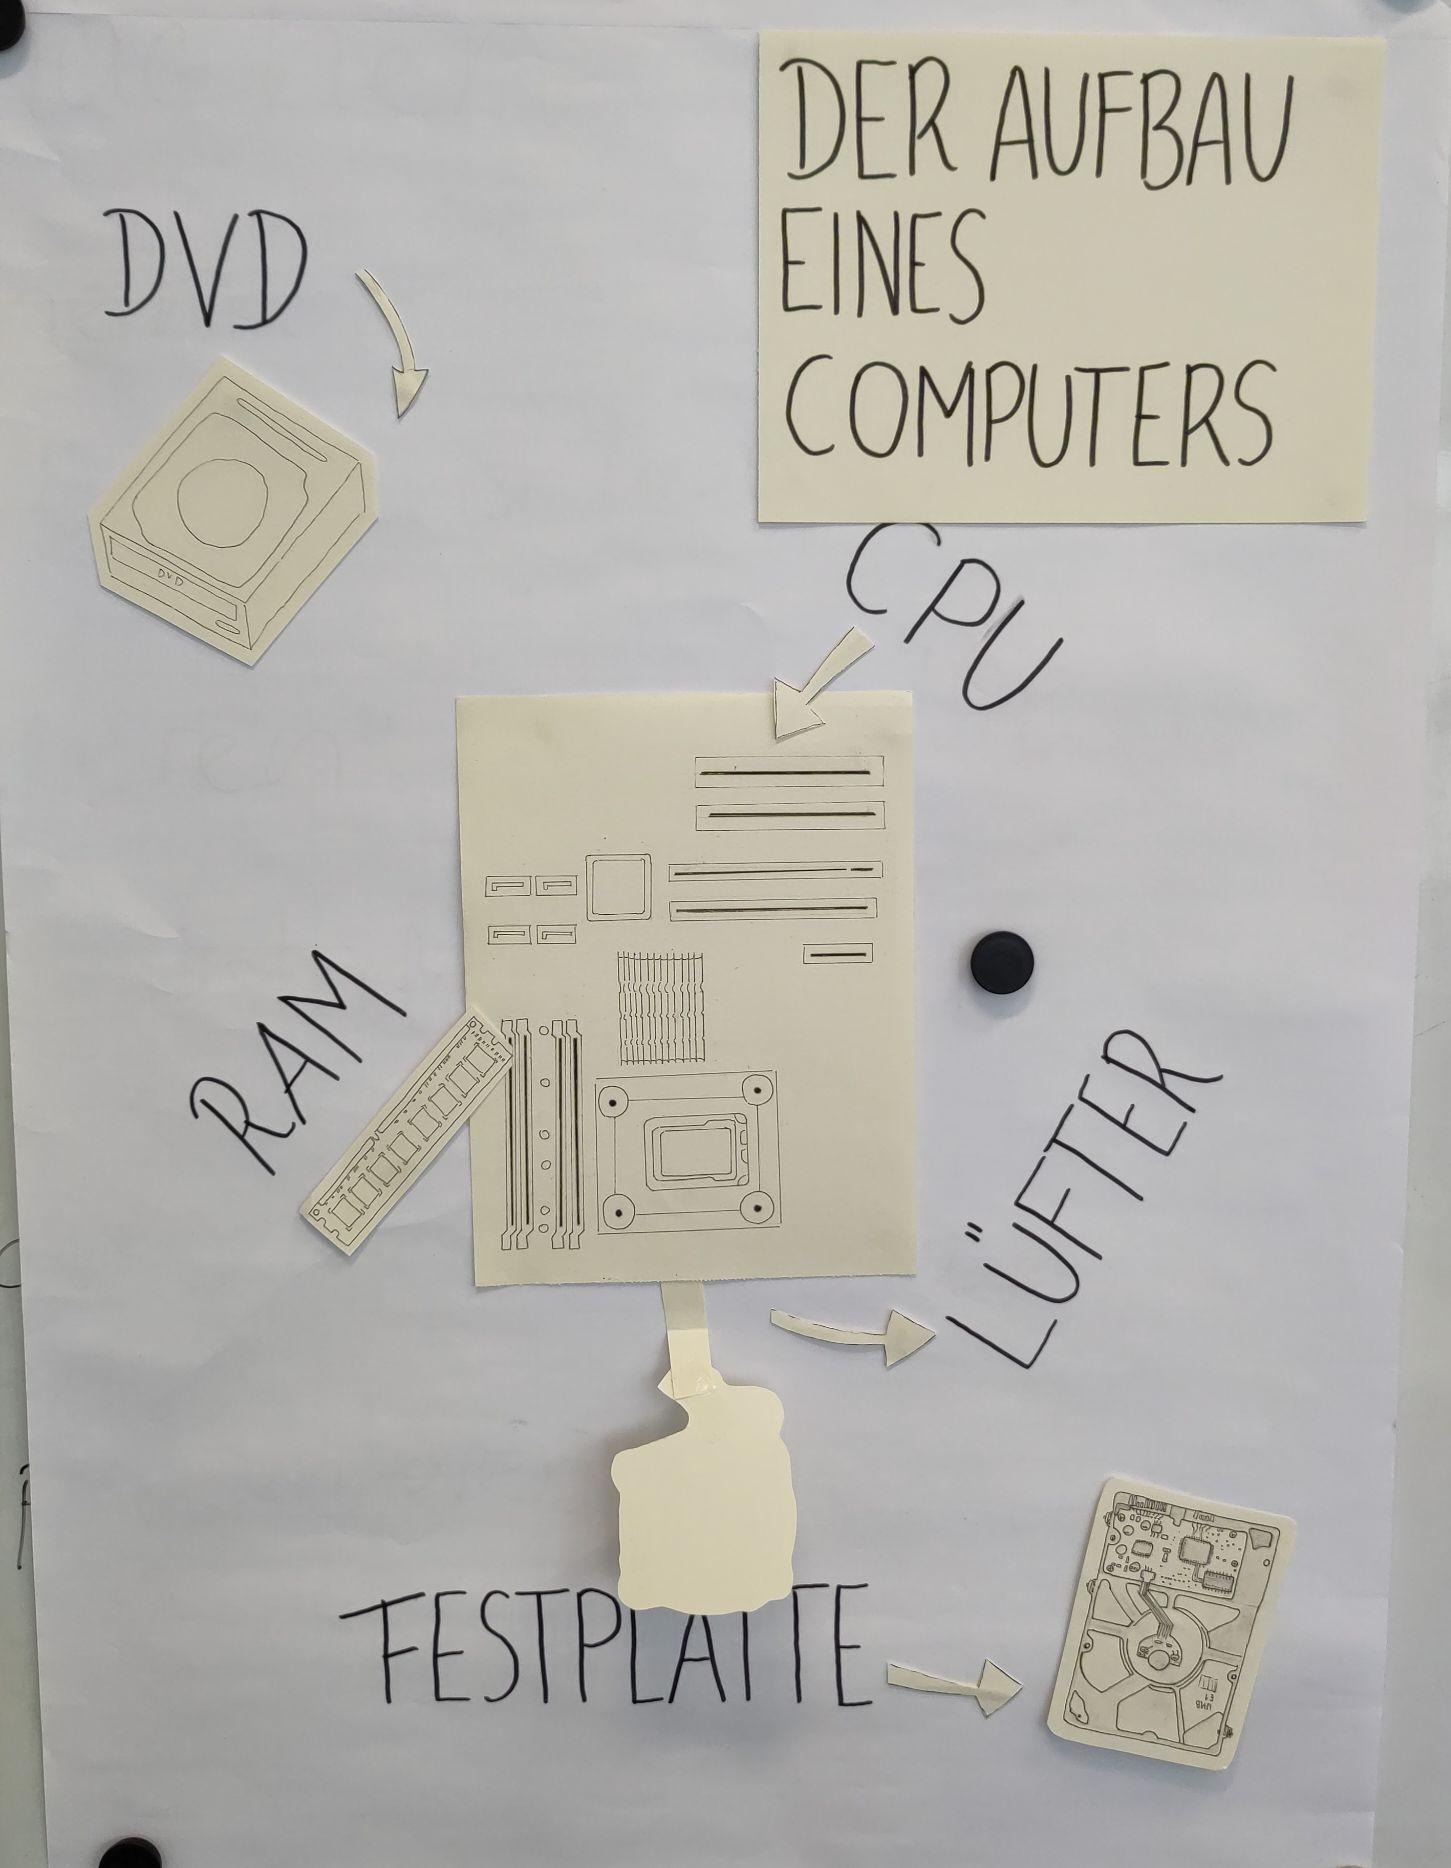 DER AUFBAU
EINES
COMPUTERS
DVD
DVD
CPU
RAM
LÜFTER
FESTPLATTE